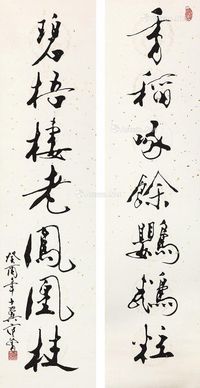 香稻啄餘鸚鵡粒
碧梧棲老鳳凰枝
癸酉年十翼范曾